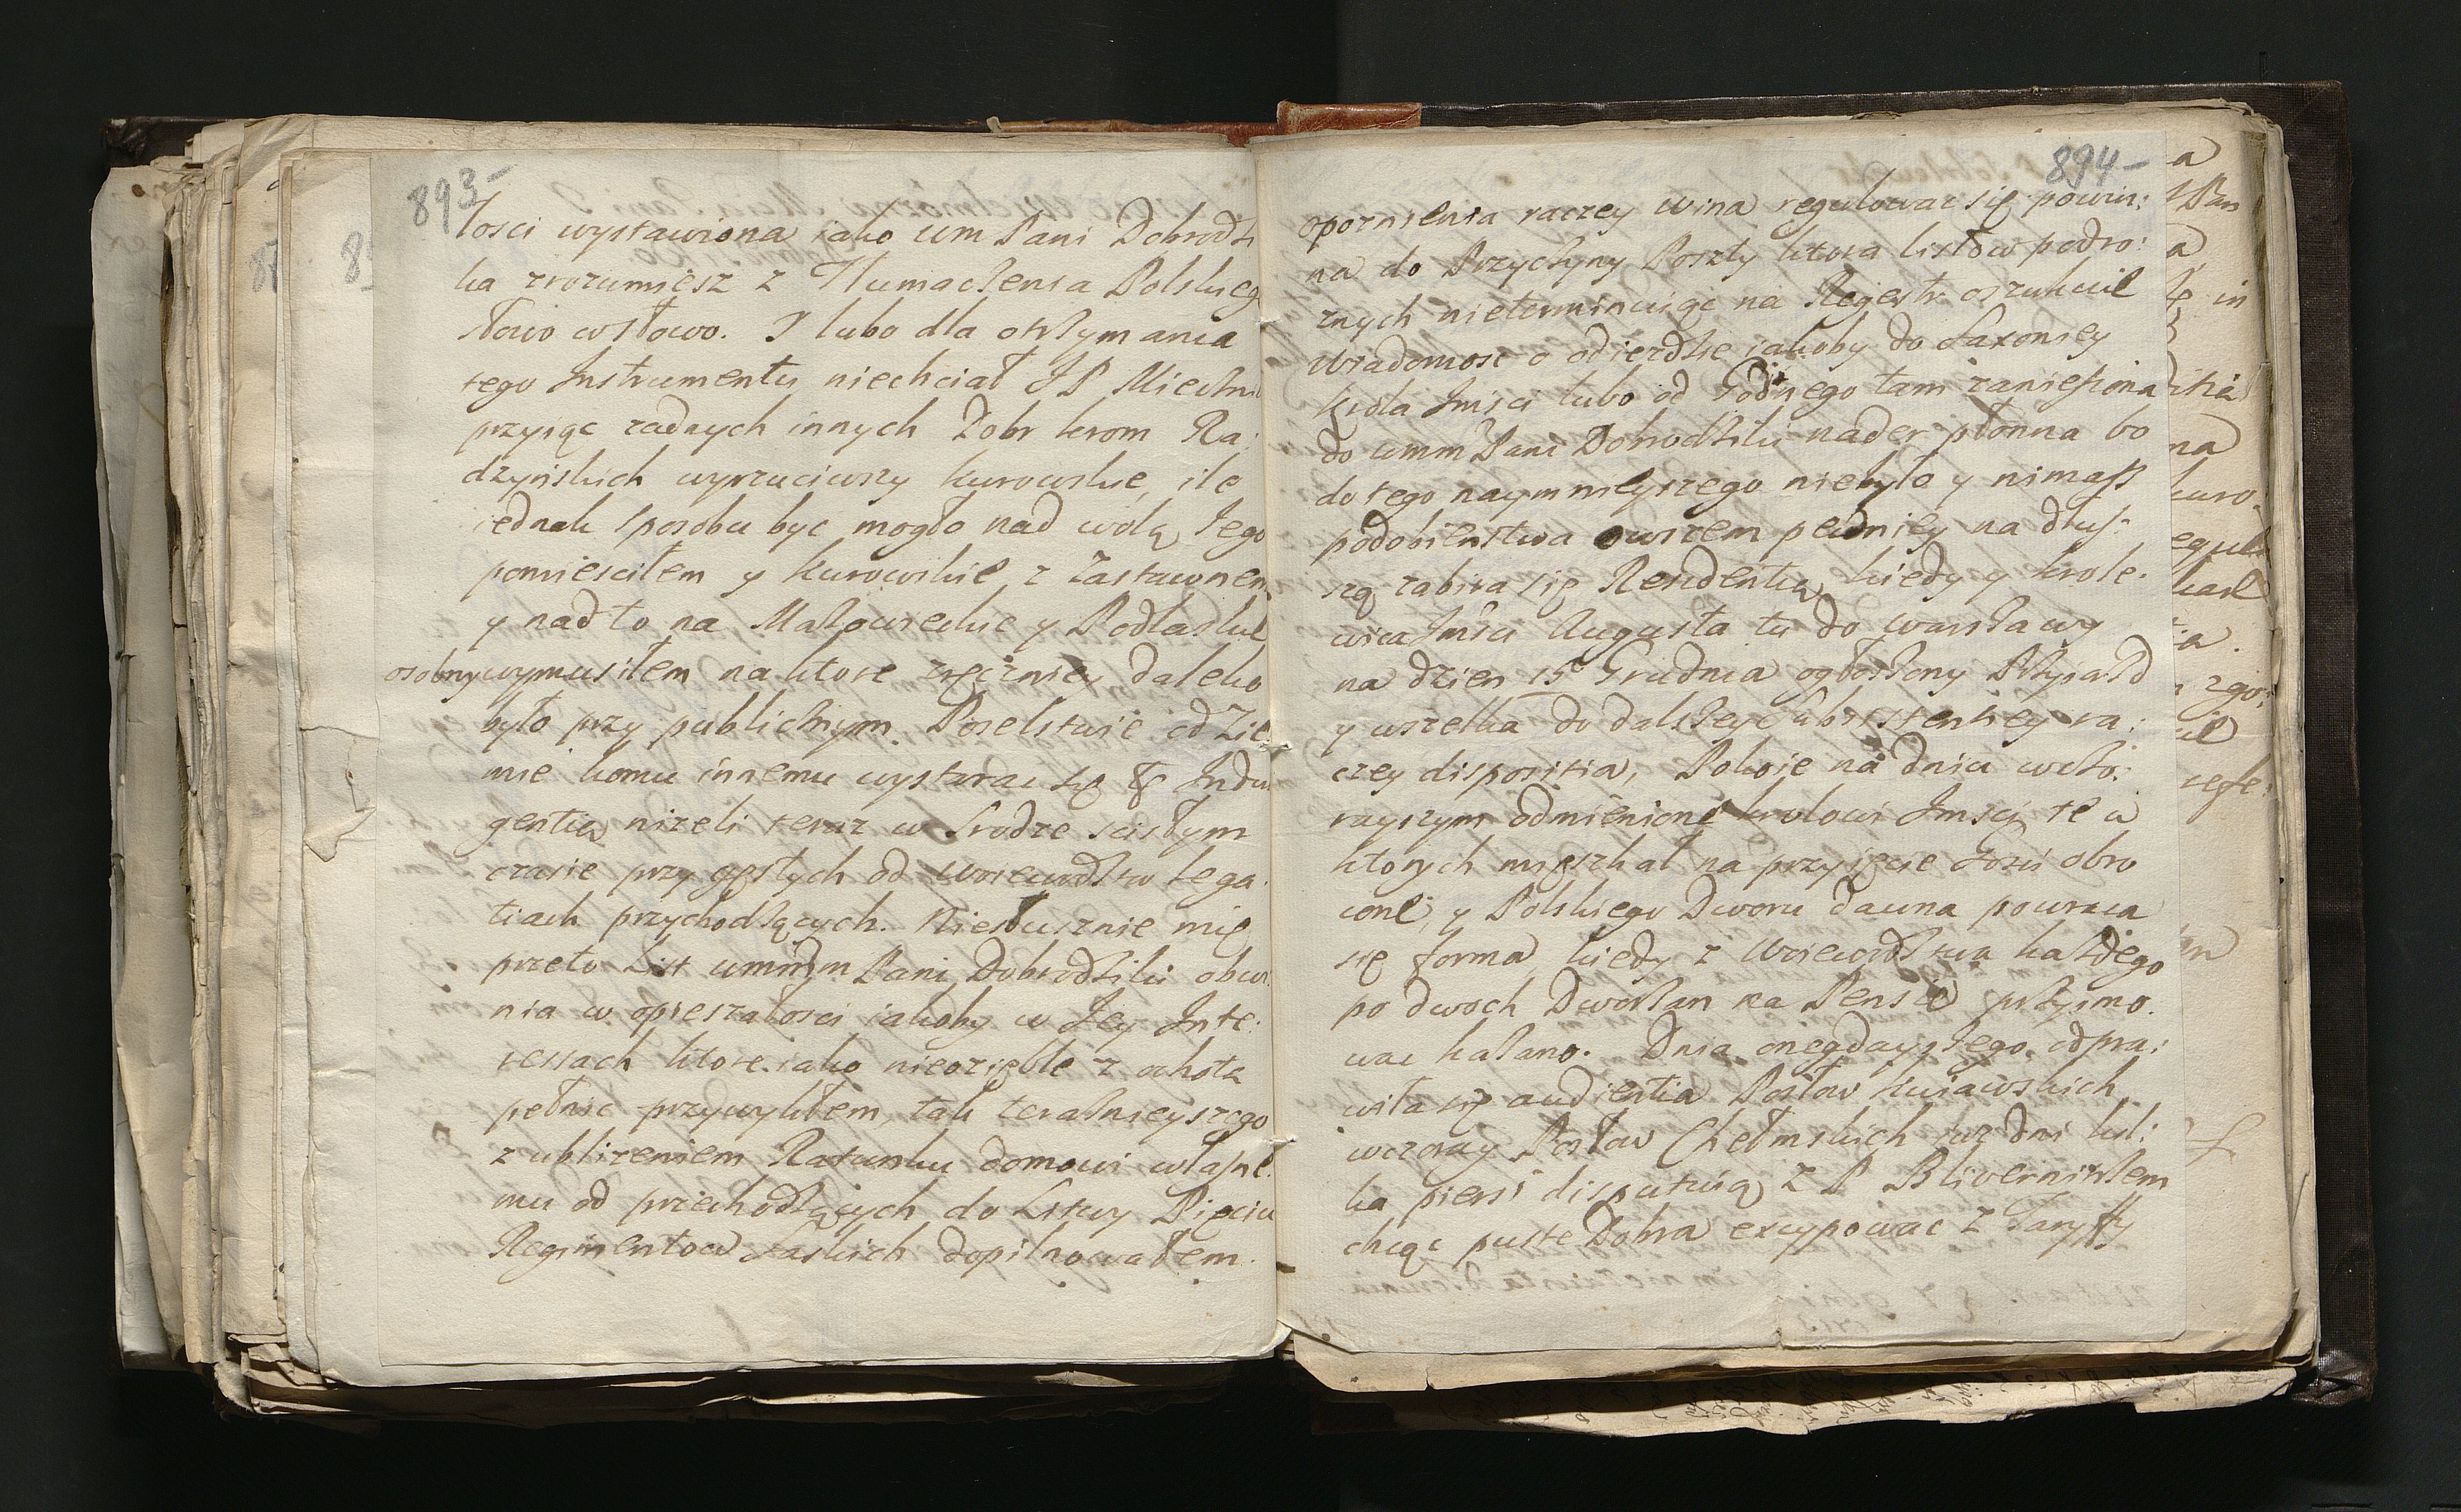 893-
łosci wystawiona iako WM Pani Dobrodzi
ka zrozumiesz z Tłumaczenia Polskieg
słowo w słowo. I lubo dla otrzymania
tego Instrumentu niechciał JP Miecznik
przyiąc zadnych innych Dobr krom Ra:
dzyńskich wyrzuciwszy Kurowskie, ile
iednak sposobu byc mogło nad wolą Jego
pomiescilem y Kurowskie z Zastawnem
y nad to na Mazowieckie y Podlaskie
osobny wymusilem na ktore zręczniey daleko
było przy publicznym Poselstwie od Zie
mie komu innemu wystarac się Indul
gentią nizeli teraz w srodze scisłym
czasie przy gęstych od Woiewodztw Lega:
tiach przychodzących. Niesłusznie mię
przeto List Pani Dobrodziki obwi
nia w opieszałosci iakoby w Jey Inte:
ressach ktore iako nieozięble z ochotą
pełnic przywykłem, tak teraznieyszego
z ubliżeniem Ratunku domowi własne:
mu od przechodzących do Litwy Pięciu
Regimentow Saskich dopilnowałem.
894-
opoznienia raczey wina regulowac się powin:
na do Przyczyny Poszty ktora listow podro:
znych nieterminuiąc na Regestr oszukiwa
Wiadomosc o odiezdzie iakoby do Saxoniey
Krola Jmsci lubo od Godnego tam zaniesiona
do WMM Pani Dobrodziki nader płonna bo
do tego naymnieyszego niebyło y nimasz
podobienstwa owszem pewniey na dłuz:
szą zabira się Residentią kiedy y krole:
wica Jmsci Augusta tu do Warszawy
na dzien 15 Grudnia ogłoszony Przyiazd
y wszelka do dalszey Subsistentiey ra:
czey dispositia, Pokoie na dniu wczo:
rayszym odmienione krolowi Jmsci te w
ktorych mięszkał na przyięcie Gosci obro
cone, y Polskiego Dworu dawna powraca
się forma, kiedy z Woiewodztwa kazdego
po dwoch Dworzan na Pensie przyimo:
wac kazano. Dnia onegdayszego odpra:
wiła się audientia Posłow Kuiawskich
wczoray Posłow Chełmskich iuz dni kil:
ka piersi disputuią z P Bliwernitzem
chcąc puste Dobra excypowac z Taryffy